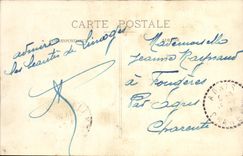 CARTE POSTALE
admirez
les beautés de Limoges
Mademoiselle
Jeanne Raynaud
à Fougères
Par Agris
Charente